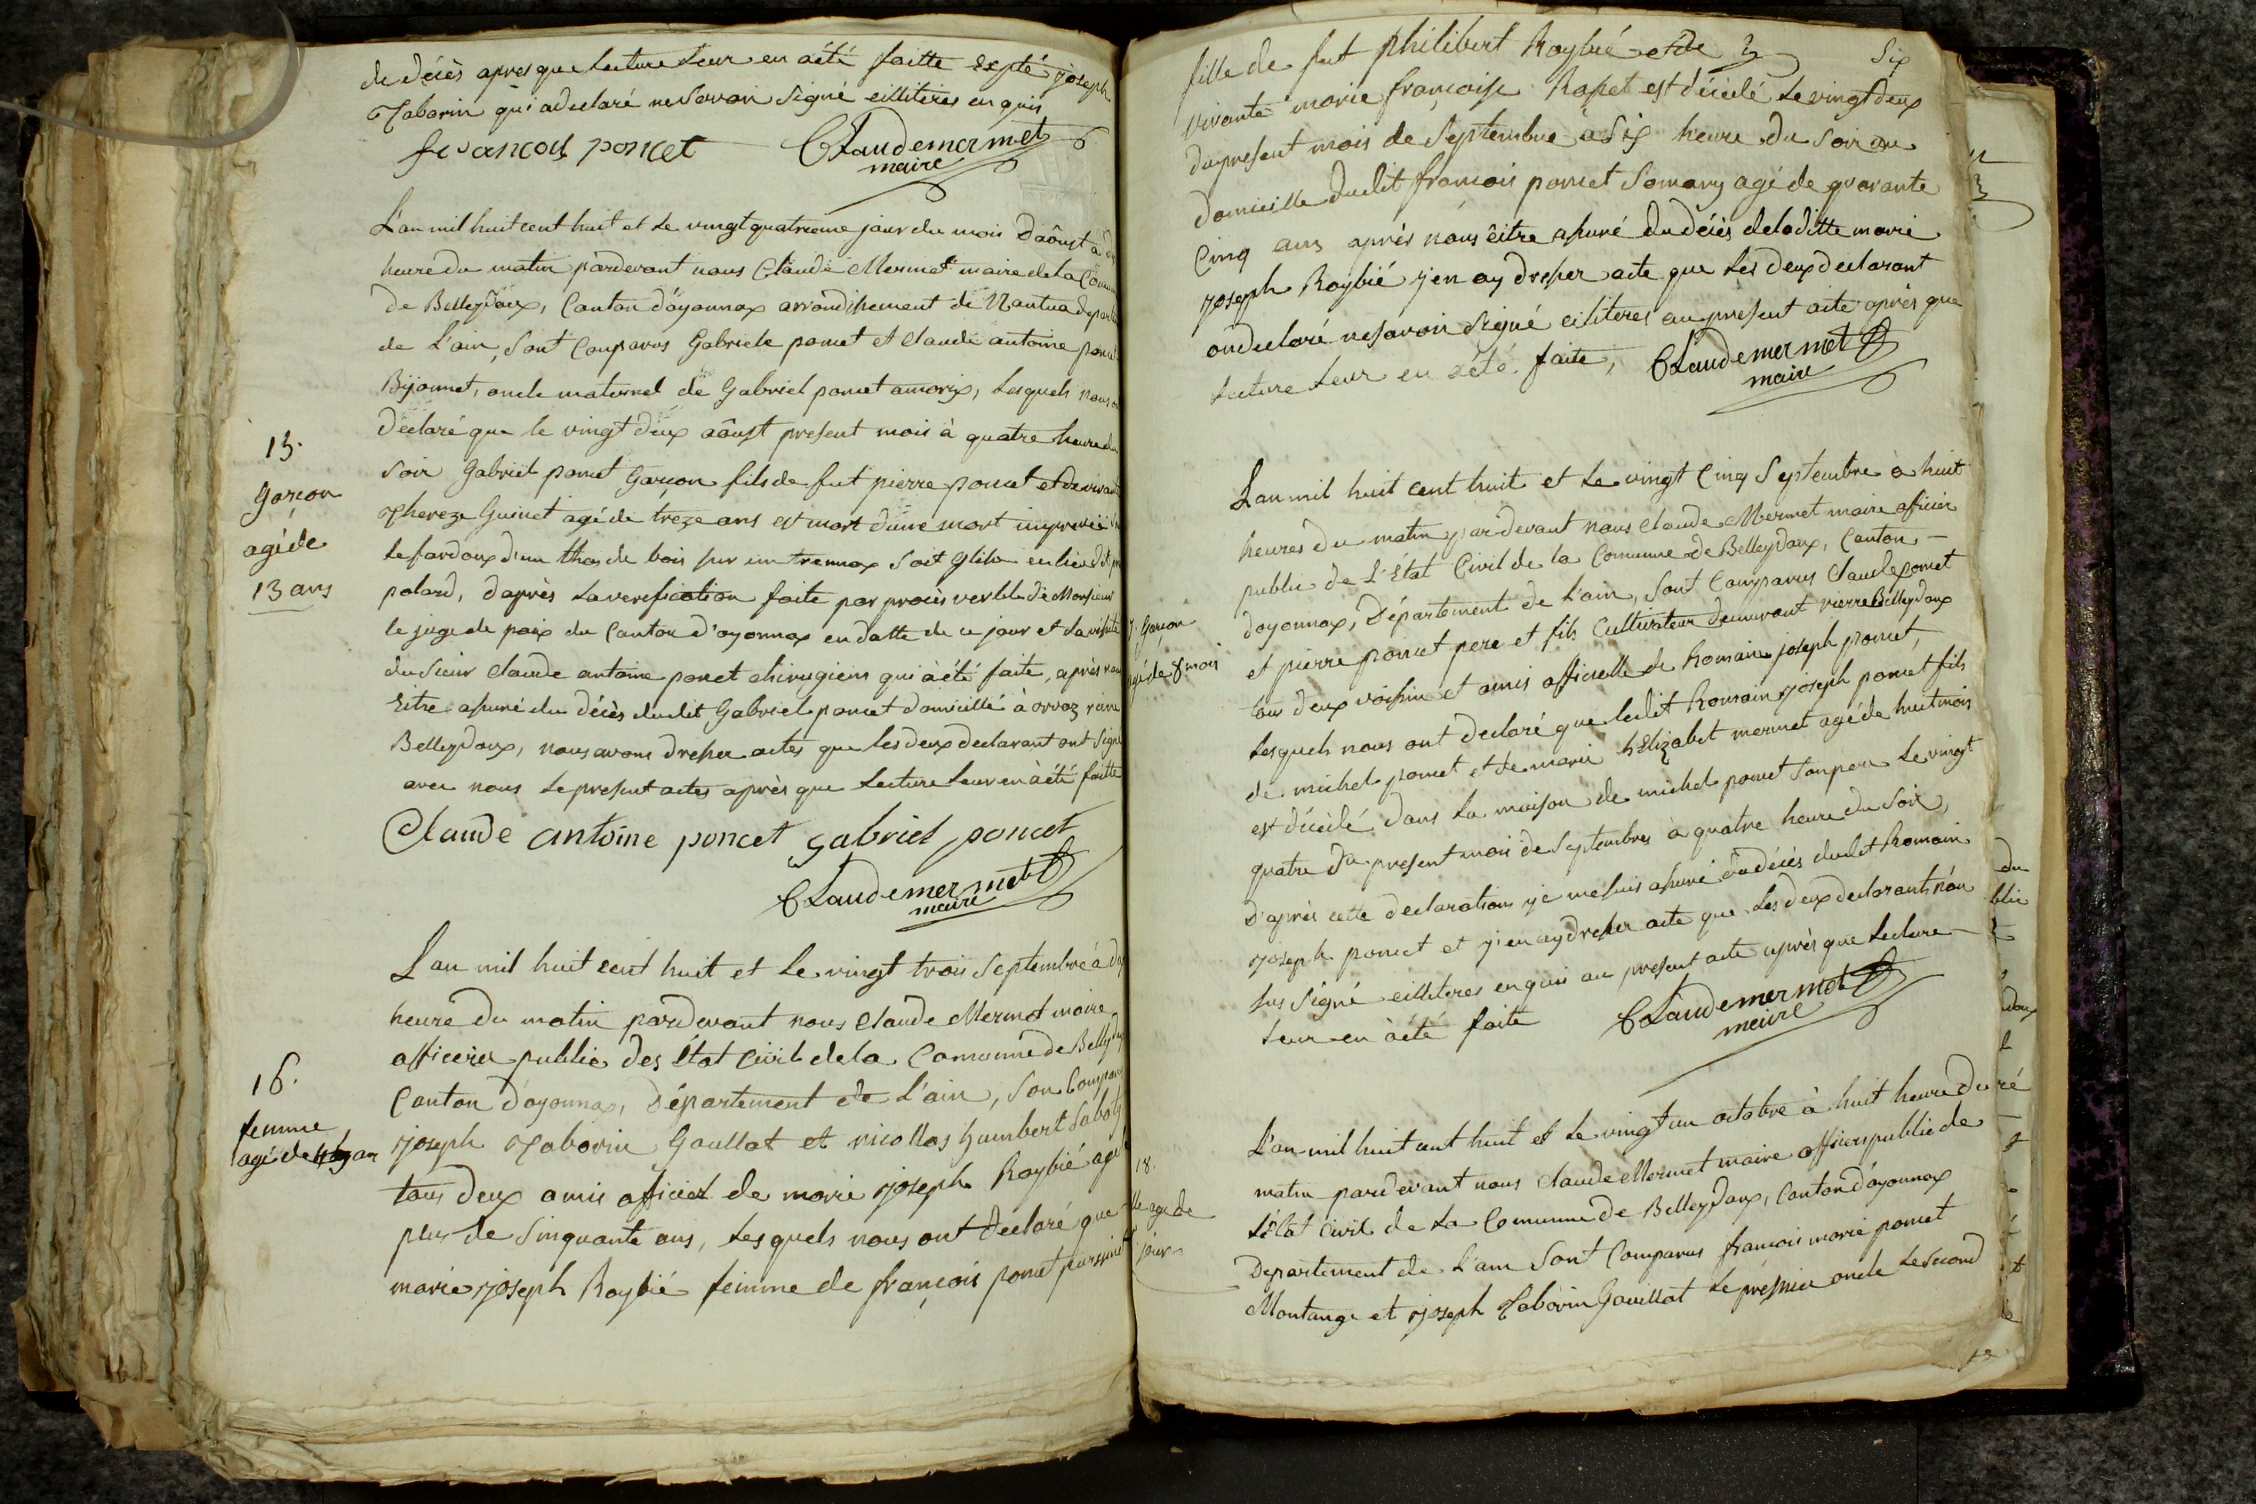 de décès apres que lecture leur en aété faitte expté joseph
Tabarin qui adeclaré ne Savoir Signé eillitéres enquis
françois poncet Claudemermet
maire
L'an mil huit cent huit et le vingt quatrieme jour du mois D'aôust à
heure du matin pardevant nous Claude Mermet maire dela
de Belleydoux, Canton d'oyonnax arrondihement de Nantua
de L'ain, Sont Comparus Gabriele poncet et Claude antoine
Bijonnet, oncle maternel de Gabriel poncet amorix, Lesquels nous
Declaré que le vingt deux aôust present mois à quatre heure du
Soir Gabriel poncet Garçon fils de fut pierre poncet et de vivante
Thereze Guinet agé de treze ans est mort d'une mort
le fardoux d'un de bois sur un Soit Glise en lieu dit
polard, d'après la verefication faite par procès verble de Monsieur
le juge de paix du Canton d'oyonnax en datte de ce jour et la visite
du Sieur Claude antoine poncet chirugiens qui à été faite, après
Eitre ahuré du décès dudit Gabriel poncet domicillé à orvaz
Belleydoux, nous avons dreher actes que les deux declarant ont Signé
avec nous le present actes après que Lecture leur en à été faitte
Claude antoine poncet gabriel poncet
Claudemermet
maire
13.
Garçon
agé de
13 ans
L'an mil huit cent huit et le vingt trois Septembre à
heure du matin pardevant nous Claude Mermet maire
officier public des État Civil dela Comunne de
Canton d'oyonnax, Département de L'ain, Son
joseph Taborin Goullat et nicollas humbert
tous deux amis officiel de marie joseph Roybié
plus de Sinquante ans, Lesquels nous ont declaré que
marie joseph Roybié femme de françois poncet
16.
femme
agé de an
fille de fut philibert Roybié et de Six
vivante marie françoise Rapet est décédé le vingt deux
du present mois de Septembre à Six heure du Soir au
domicille dudit françois poncet Somary agé de quarante
Cinq ans après nous êitre ahuré du décès deladitte marie
joseph Roybié j'en ay dreher acte que les deux declarant
on declaré ne savoir Signé eilitéres au present acte après que
lecture leur en àété faite, Claudemermet
maire
L'an mil huit cent huit et le vingt Cinq Septembre à huit
heures du matin pardevant nous Claude Mermet maire officier
public de L'État Civil de la Comunne de Belleydoux, Canton
d'oyonnax, Département de L'ain, Sont Comparus Claude poncet
et pierre poncet pere et fils Cultivateur demeurant Belleydoux
tous deux voihin et amis officielle de Romain joseph poncet,
Lesquels nous ont declaré que ledit Romain joseph poncet fils
de michel poncet et de marie hElizabet mermet agé de huit mois
est décédé dans la maison de michel poncet Son pere le vingt
quatre du present mois de Septembre à quatre heure du Soir,
D'après cette declaration je me suis ahuré du décès dudit Romain
joseph poncet et j'en ay dreher acte que les deux declarants n'on
sus Signé eillitéres enquis au present acte après que lecture
leur en àété faitte Claudemermet
maire
Garçon
agé de 8 mois
L'an mil huit cent huit et le vingt un octobre à huit heure du
matin pardevant nous Claude Mermet maire officier public de
L'État Civil de la Comunne de Belleydoux, Canton d'oyonnax
Departement de L'ain Sont Comparus françois marie poncet
Montange et joseph Taborin Gouillat le presmier oncle le second
18.
agé de
jour